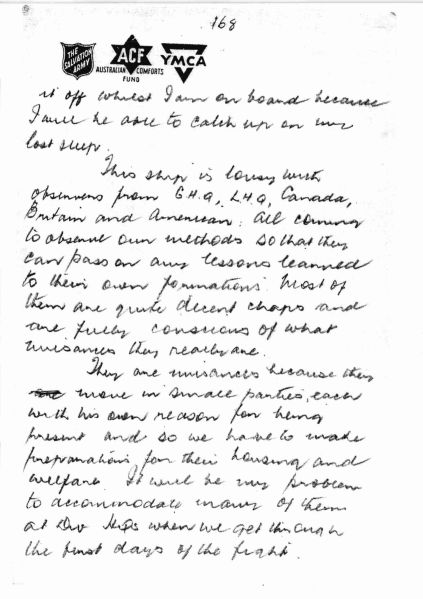 168
THE SALVATION ARMY
ACF
AUSTRALIAN COMFORTS FUND
YMCA
it off whilst I am on board because
I will be able to catch up on my
lost sleep.
This ship is lousy with
observers from G.H.Q, L.H.Q, Canada,
Britain and American. All coming
to observe our methods so that they
can pass on any lessons learned
to their own formations. Most of
them are quite decent chaps and
are fully conscious of what
nuisances they really are.
They are nuisances because they
move in small parties, each
with his own reason for being
present and so we have to make
preparations for their housing and
welfare. It will be my problem
to accommodate many of them
at Div HQs when we get through
the first days of the fight.